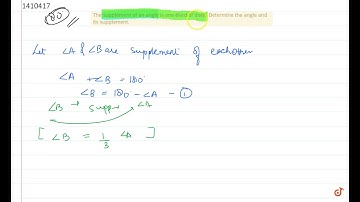 1410417
180
The supplement of an angle is one-third of itself. Determine the angle and its supplement.
Let ∠A & ∠B are supplement of each other
∠A + ∠B = 180°
∠B = 180 - ∠A - ①
∠B → suppl ∠A
[ ∠B = 1/3 ∠A ]